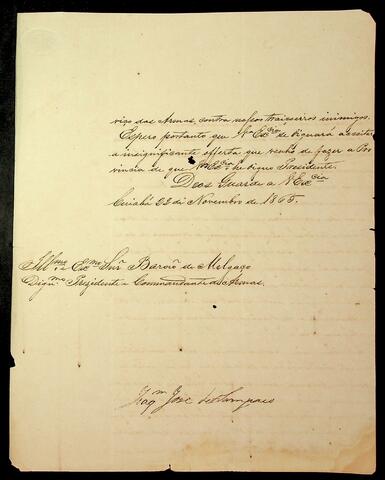 viço das Armas, contra nossos traiçoeiros inimigos.
Espero portanto que V. Excia se dignará acceitar
a insignificante offerta que venho de fazer a Pro
vincia de que V. Excia he digno Presidente.
Deos Guarde a V. Excia
Cuiabá 22 de Novembro de 1865.
Illmo e Exmo Snr Barão de Melgaço
Dignmo Presidente e Commandante das Armas.
Joaqm José de